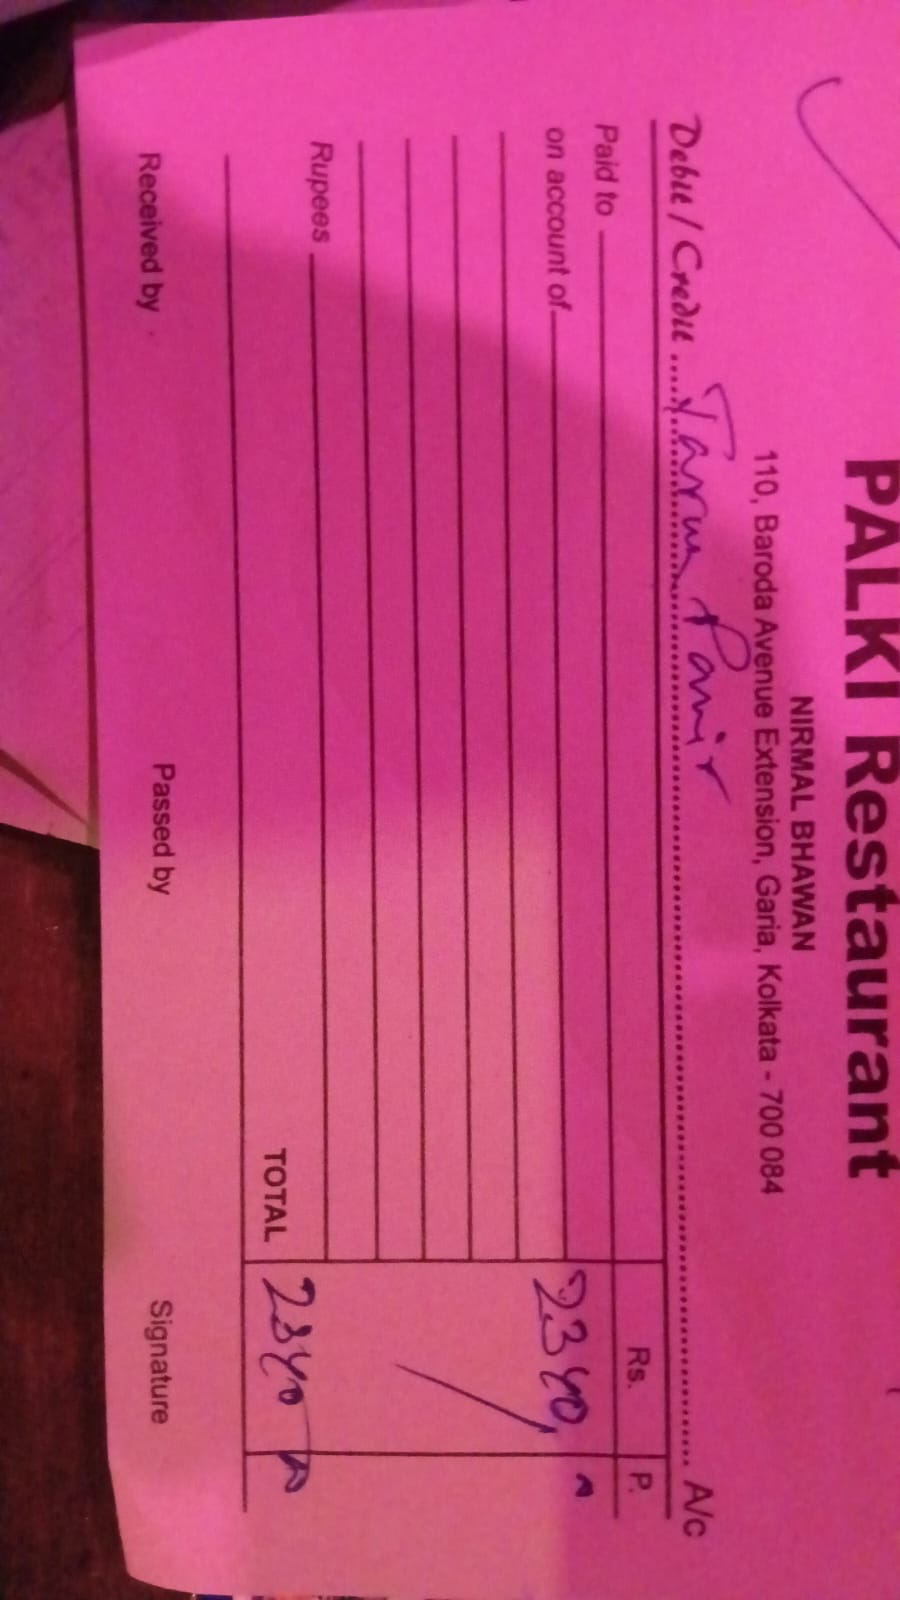 PALKI Restaurant
NIRMAL BHAWAN
110, Baroda Avenue Extension, Garia, Kolkata - 700 084
Debit / Credit Tarun A/c
Rs. P.
Paid to
on account of 2340
Rupees
TOTAL 2340
Received by Passed by Signature